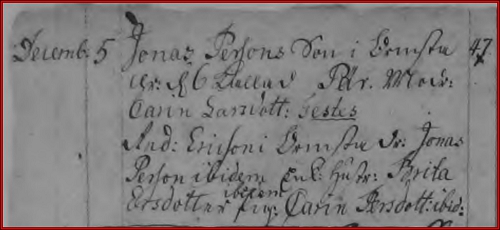 Decemb: 5 Jonas Persons Son i Ormsta 47
d: 6 Kallad Pehr. Modr:
Carin Larsdott: Testes
And: Ersson i Ormsta dr: Jonas
Person ibidem Enk: Hustr: Brita
Ersdotter ibidem Pig: Carin Persdott: ibid: